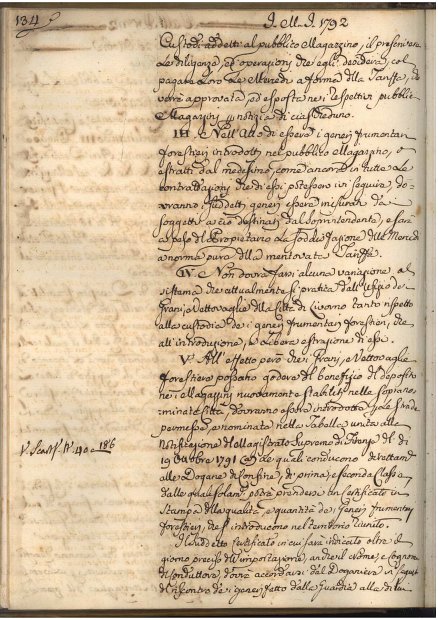 134
I. M. I. 1792
Custodi addetti al pubblico Magazzino, il prescrivere
le diligenze, ed operazioni che egli desidera, col
pagare loro le Mercedi a forma della Tariffa, che
verrà approvata, ed esposta nei respettivi pubblici
Magazzini a notizia di ciascheduno.
III. Nell' Atto di essere i generi frumentari
forestieri introdotti nel pubblico Magazzino, o
estratti dal medesimo, come ancora in tutte le
contrattazioni che di essi potessero ivi seguire, do-
vranno suddetti generi essere misurati da
soggetti a ciò destinati dal Soprintendente, e sarà
a peso del Proprietario la soddisfazione delle Mercedi
a norma pure della mentovata Tariffa.
IV. Non dovrà farsi alcuna variazione al
sistema che attualmente si pratica dall' Uffizio dei
Grani, e Vettovaglie della Città di Livorno tanto rispetto
alla custodia dei generi frumentari forestieri, che
all' introduzione, e libera estrazione di essi.
V. All' effetto però che i Grani, e Vettovaglie
forestiere possano godere del benefizio del deposito
nei Magazzini nuovamente stabiliti nelle soprano-
minate Città dovranno essere introdotte per le strade
permesse, e nominate nella Tabella unita alla
Notificazione del Magistrato Supremo di Siena del dì
19 Ottobre 1791 le quali conducono direttamente
alle Dogane di Confine, di prima, e seconda Classe,
dalle quali solam. potrà prendersi un Certificato in
stampa della qualità, e quantità dei generi frumentari
forestieri, che s' introducono nel territorio riunito.
Il suddetto Certificato in cui sarà indicato oltre il
giorno preciso dell' importazione, anche il nome, e cognome
del conduttore, dovrà accordarsi dal Doganiere in seguito
del riscontro dei generi fatto dalle Guardie alla di lui
N. 40 186